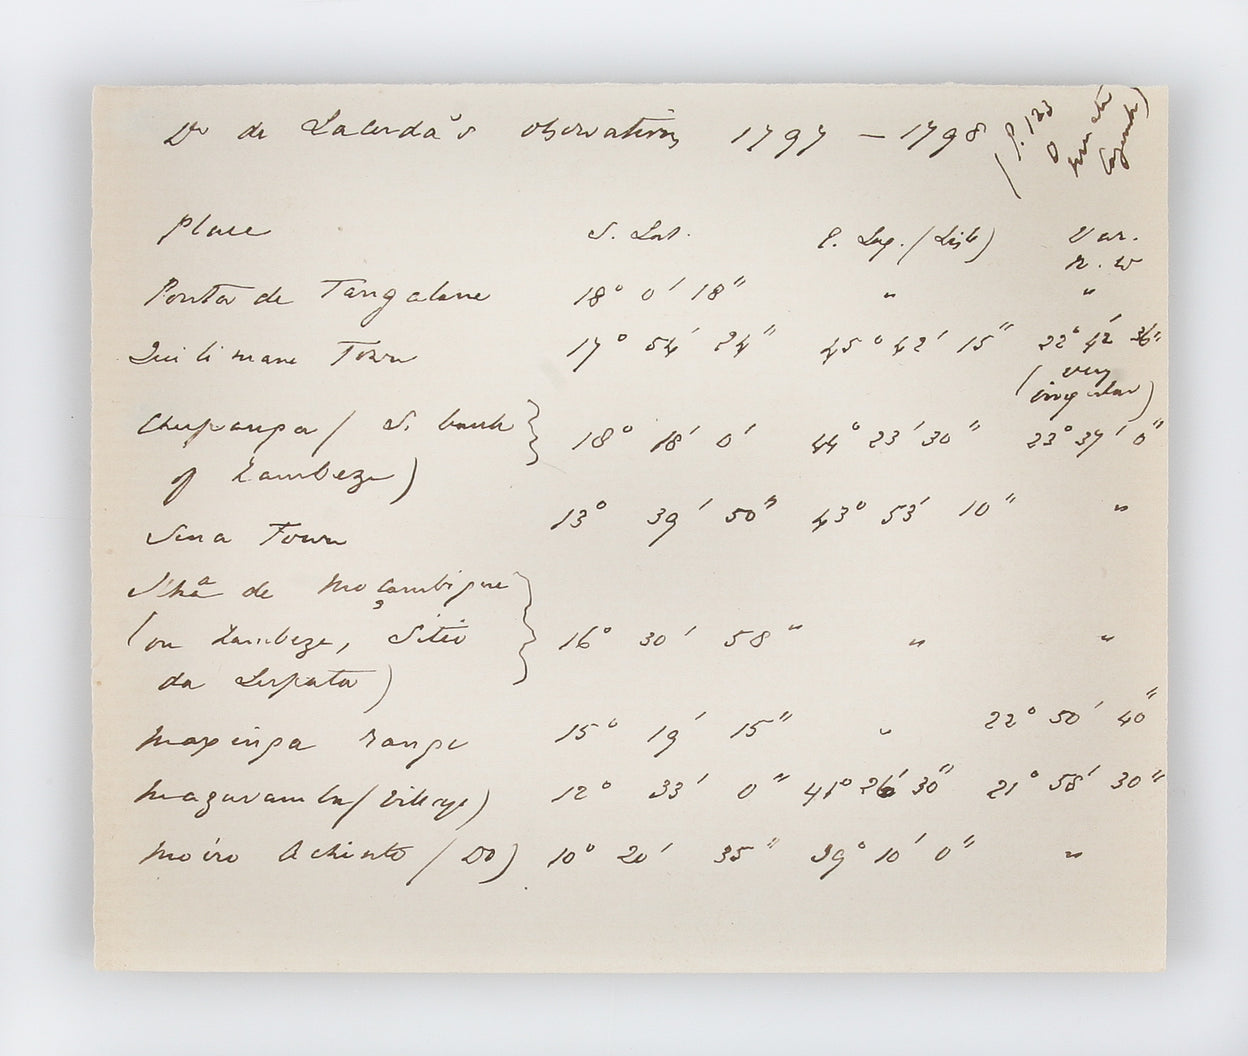 Dr de Lacerda's observations 1797 – 1798
(P. 123 O
Muata
Cazembe)
Place S. Lat. E. Long. (Lisb) Var.
N. W
Ponta de Tangalane 18° 0' 18" " "
Quilimane Town 17° 54' 24" 45° 42' 15" 22° 42' 36"
(very
irregular)
Chupanga (S. bank 18° 18' 0' 44° 23' 30" 23° 37' 0"
of Zambeze)
Sena Town 13° 39' 50" 43° 53' 10" "
Ilha de Moçambique
(on Zambeze, Sitio 16° 30' 58" " "
da Lupata)
Maxinga range 15° 19' 15" " 22° 50' 40"
Mazavamba (Village) 12° 33' 0" 41° 26' 30" 21° 58' 30"
Moiro Achinto (Do) 10° 20' 35" 39° 10' 0" "